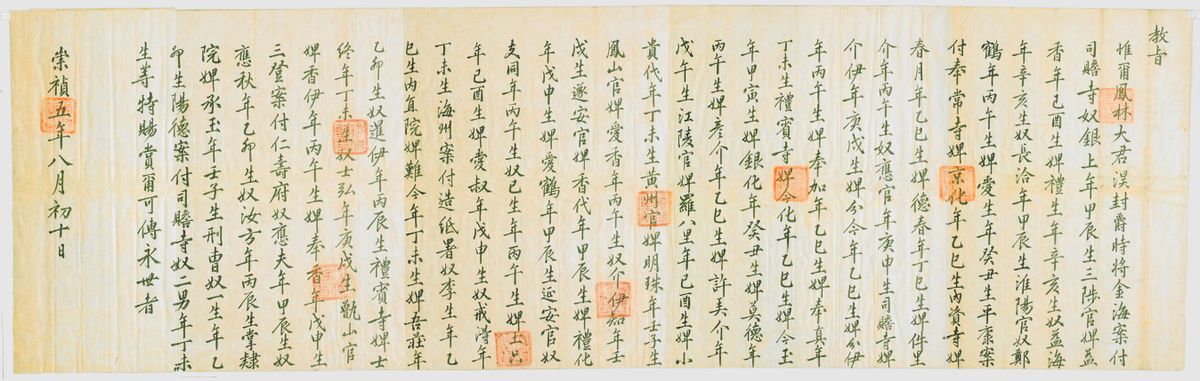 教旨
惟爾鳳林大君淏封爵時將金海案付
司贍寺奴銀上年甲辰生三陟官婢益
香年己酉生婢禮生年辛亥生奴益海
年辛亥生奴長洽年甲辰生淮陽官奴鄭
鶴年丙午生婢愛生年癸丑生平康案
付奉常寺婢京化年乙巳生內資寺婢
春月年乙巳生婢德春年丁巳生婢件里
介年丙午生奴應官年庚申生司贍寺婢
介伊年庚戌生婢分今年乙巳生婢分伊
年丙午生婢奉加年乙巳生婢奉真年
丁未生禮賓寺婢今化年乙巳生婢今玉
年甲寅生婢銀化年癸丑生婢莫德年
丙午生婢彥介年乙巳生婢許美介年
戊午生江陵官婢羅八里年己酉生婢小
貴代年丁未生黃州官婢明珠年壬子生
鳳山官婢愛香年丙午生奴介伊知年壬
戌生遂安官婢香代年甲辰生婢禮化
年戊申生婢愛鶴年甲辰生延安官奴
支同年丙午生奴巳生年丙午生婢士只
年己酉生婢愛叔年戊申生奴戒得年
丁未生海州案付造紙署奴李生年乙
巳生內直院婢難今年丁未生婢吾莊年
乙卯生奴暹伊年丙辰生禮賓寺婢士
終年丁未生奴士弘年庚戌生甑山官
婢香伊年丙午生婢奉香年戊申生
三登案付仁壽府奴應夫年甲辰生奴
應秋年乙卯生奴汝方年丙辰生掌隸
院婢承玉年壬子生刑曹奴一生年丁
卯生陽德案付司贍寺奴二男年丁未
生等特賜賞爾可傳永世者
崇禎五年八月初十日